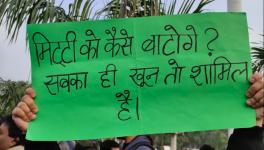 मिट्टी को कैसे बाटोगे?
सबका ही खून तो शामिल
है।